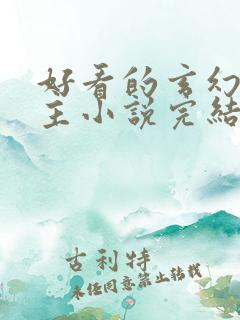 好看的玄幻
主小说完结
古利特
未经同意禁止转载